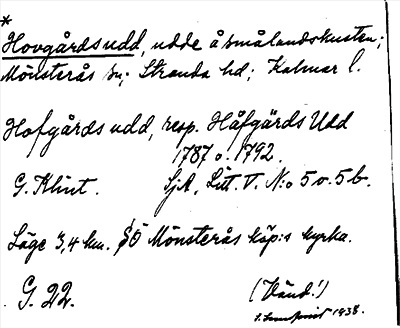 *
Hovgårdsudd, udde å smålandskusten;
Mönsterås sn; Stranda hd; Kalmar l.
Hofgårds udd, resp. Håfgårds Udd
1787 o. 1792.
G. Klint. SjA, Litt. V. N:o 5 o. 5 b.
Läge 3,4 km. SÖ Mönsterås köp:s kyrka.
G. 22. (Vänd!)
1938.